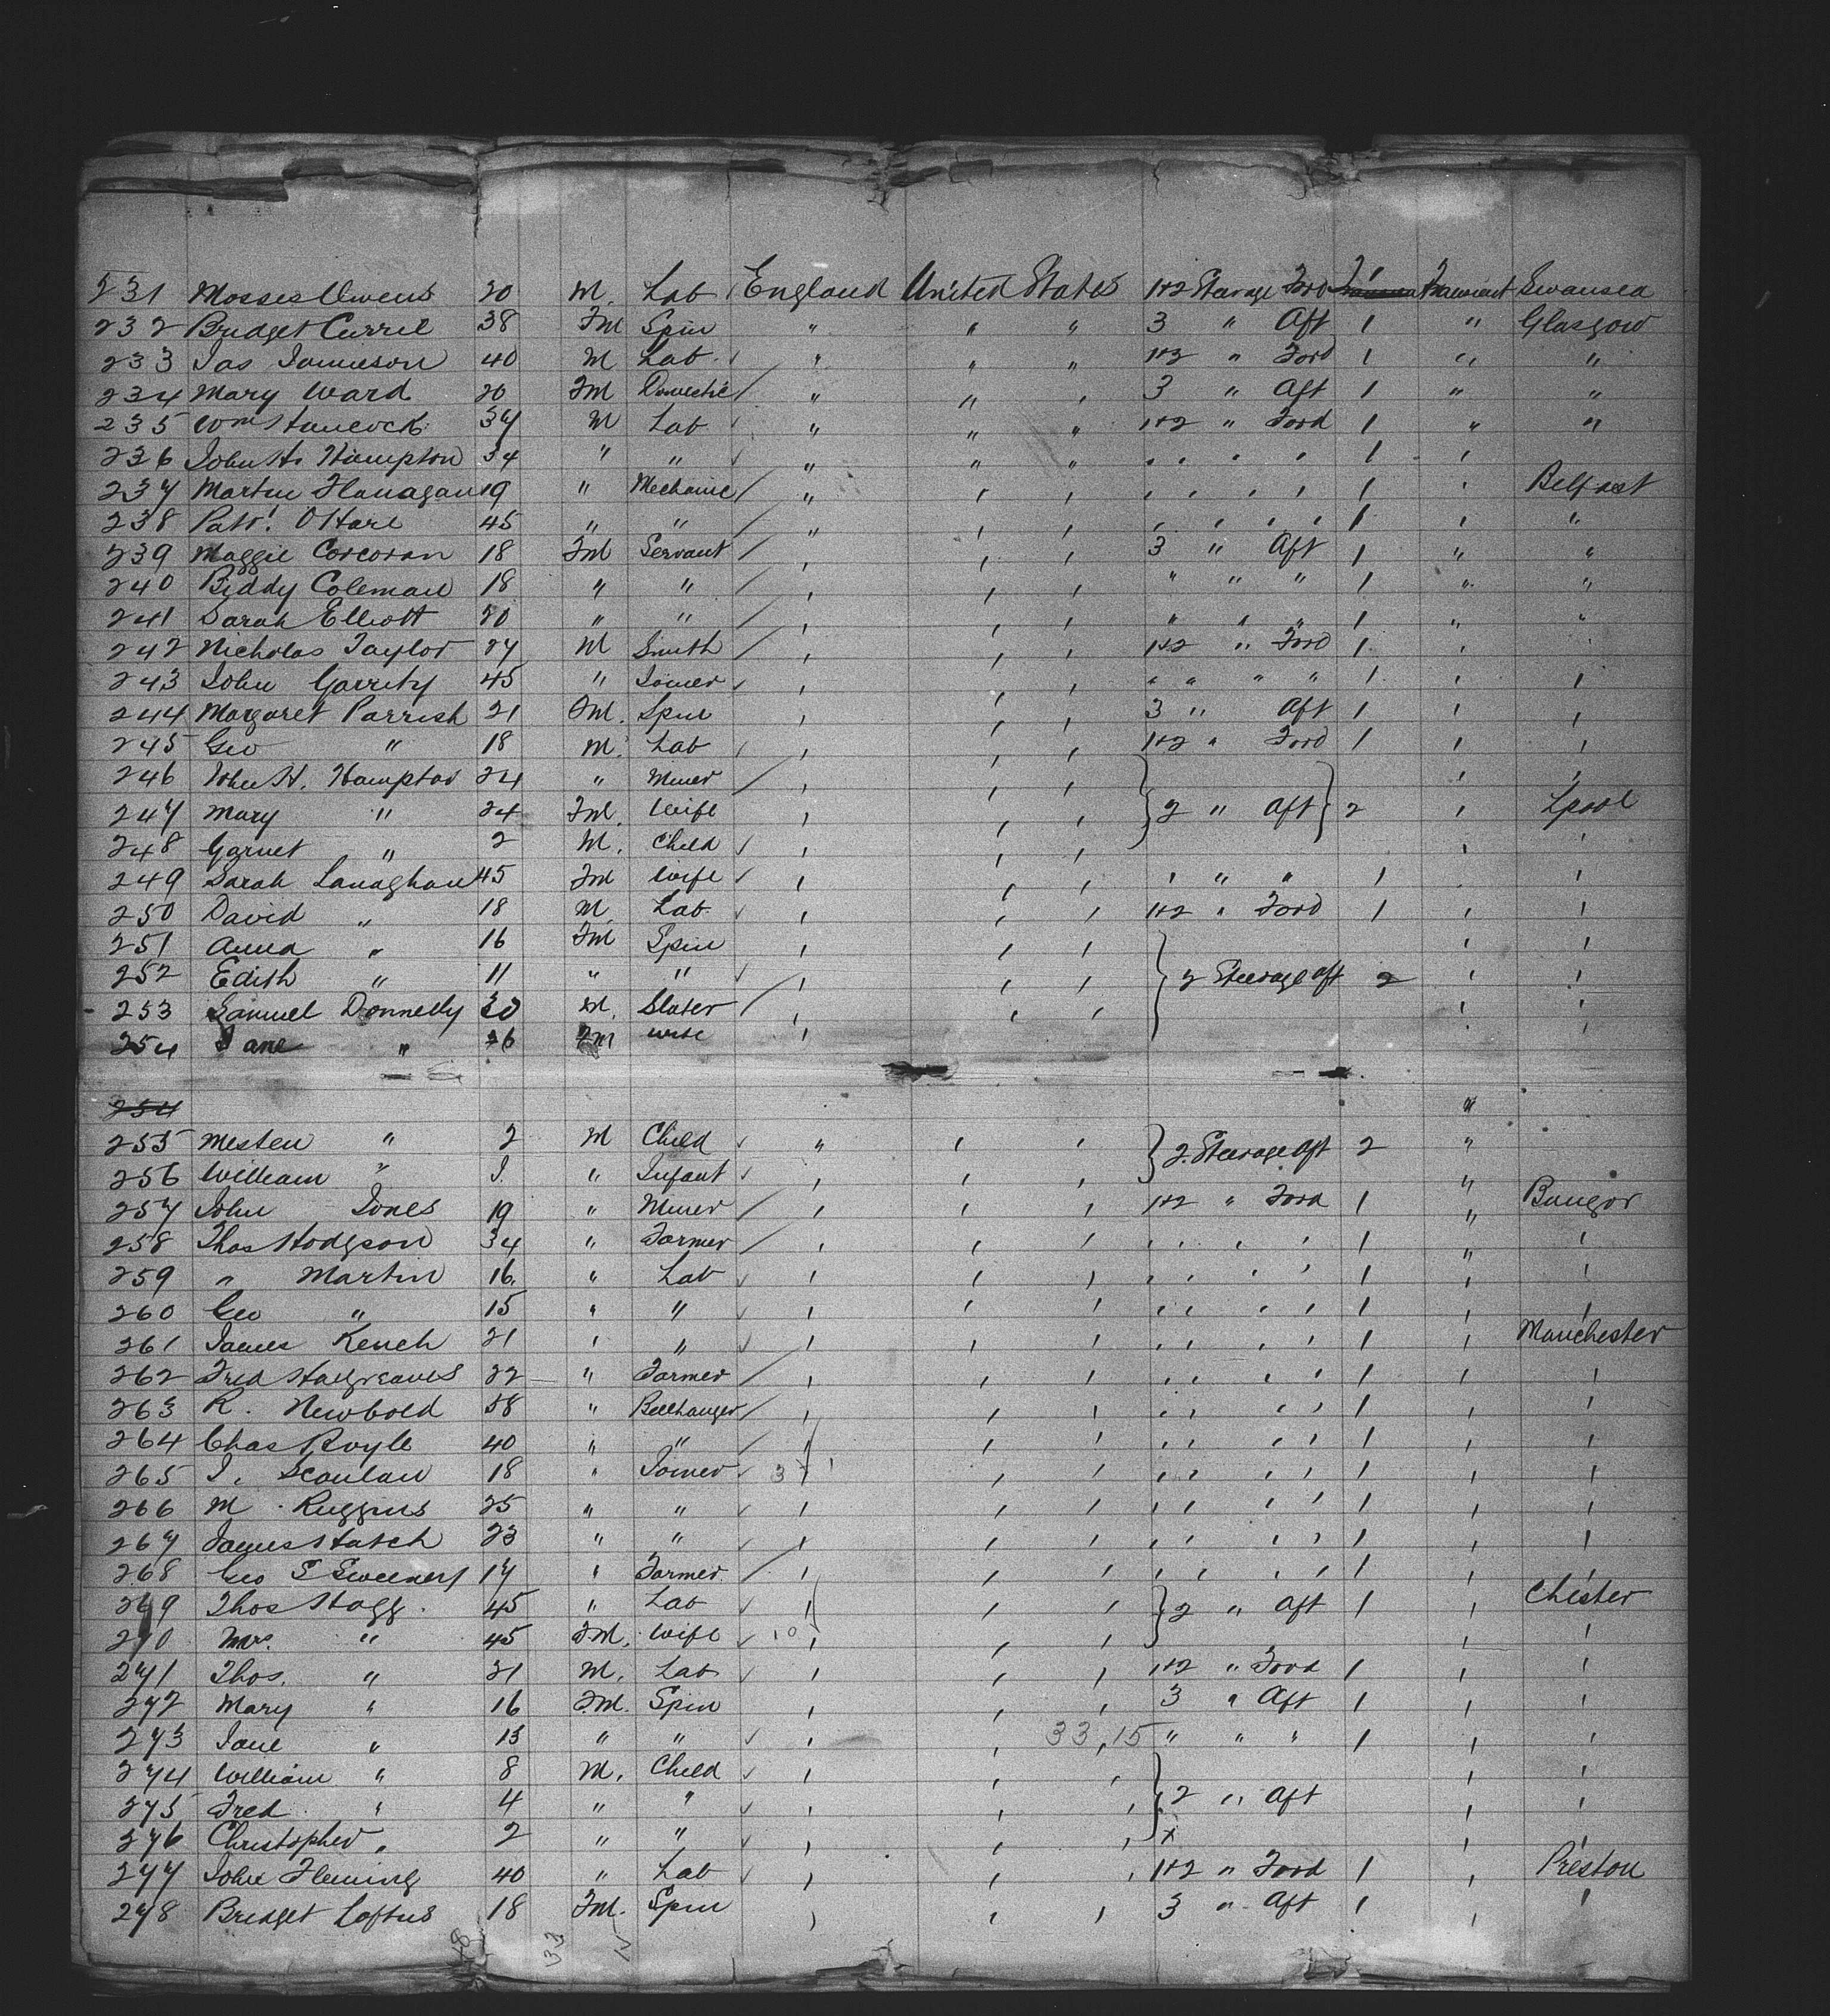 231 Mosses Owens 20 M. Lab England United States 1+2 Stearage Ford 1 Swansea
232 Bridget Currie 38 FM Spin " " " 3 " Aft 1 " Glasgow
233 Jas Jamieson 40 M Lab " " " 1+2 " Ford 1 " "
234 Mary Ward 20 FM Domestic " " " 3 " Aft 1 " "
235 Wm Hancock 37 M Lab " " " 1+2 " Ford 1 " "
236 John H. Hampton 34 " " " " " " " " " 1 "
237 Martin Flanagan 19 " Mechanic " " " " " " " 1 " Belfast
238 Patk. O'Hare 45 " " " " " " " " " 1 " "
239 Maggie Corcoran 18 FM Servant " " " 3 " Aft 1 " "
240 Biddy Coleman 18 " " " " " " " " 1 " "
241 Sarah Elliott 20 " " " " " " " " 1 " "
242 Nicholas Taylor 27 M Smith " " " 1+2 " Ford 1 " "
243 John Garrity 45 " Joiner " " " " " " " 1 " "
244 Margaret Parrish 21 FM. Spin " " " 3 " Aft 1 " "
245 Geo " 18 M. Lab " " " 1+2 " Ford 1 " "
246 John H. Hampton 24 " Miner " " " " "
247 Mary " 24 FM. Wife " " " 2 " Aft 2 " Lpool
248 Garnet " 2 M. Child " " " " "
249 Sarah Lanaghan 45 FM Wife " " " " " " 1 " "
250 David " 18 M. Lab " " " 1+2 " Ford 1 " "
251 Anna " 16 FM Spin " " " " "
252 Edith " 11 " " " " " 2 Steerage Aft 2 " "
253 Samuel Donnelly 30 M. Slater " " " " "
254 Jane " 26 FM wife " "
254 "
255 Mesten " 2 M Child " " " 2. Steerage Aft 2 "
256 William " 1. " Infant " " " "
257 John Jones 19 " Miner " " " 1+2 " Ford 1 " Bangor
258 Thos Hodgson 34 " Farmer " " " " " " " 1 " "
259 " Martin 16. " Lab " " " " " " " 1 " "
260 Geo " 15 " " " " " " " " " 1 " "
261 James Kench 21 " " " " " " " " " 1 " Manchester
262 Fred Hargreaves 22 " Farmer " " " " " " " 1 " "
263 R. Newbold 58 " Bellhanger " " " " " " " 1 " "
264 Chas Royle 40 " " " " " " " " " 1 " "
265 J. Scanlan 18 " Joiner 3 " " " " " " " 1 " "
266 M. Ruggins 25 " " " " " " " " " 1 " "
267 James Hatch 23 " " " " " " " " " 1 " "
268 Geo S Sweeney 17 " Farmer " " " " " " " 1 " "
269 Thos Hagg. 45 " Lab " " " 2 " Aft 1 " Chester
270 Mrs. " 45 FM. Wife 10 " " " " "
271 Thos. " 21 M. Lab " " " 1+2 " Ford 1 " "
272 Mary " 16 FM. Spin " " " 3 " Aft 1 " "
273 Jane " 13 " " " " 33,15 " " " 1 " "
274 William " 8 M. Child " " " " "
275 Fred " 4 " " " " " 2 " Aft " "
276 Christopher " 2 " " " " " x " "
277 John Fleming 40 " Lab " " " 1+2 " Ford 1 " Preston
278 Bridget Loftus 18 FM. Spin " " " 3 " Aft 1 " "
48 33 15